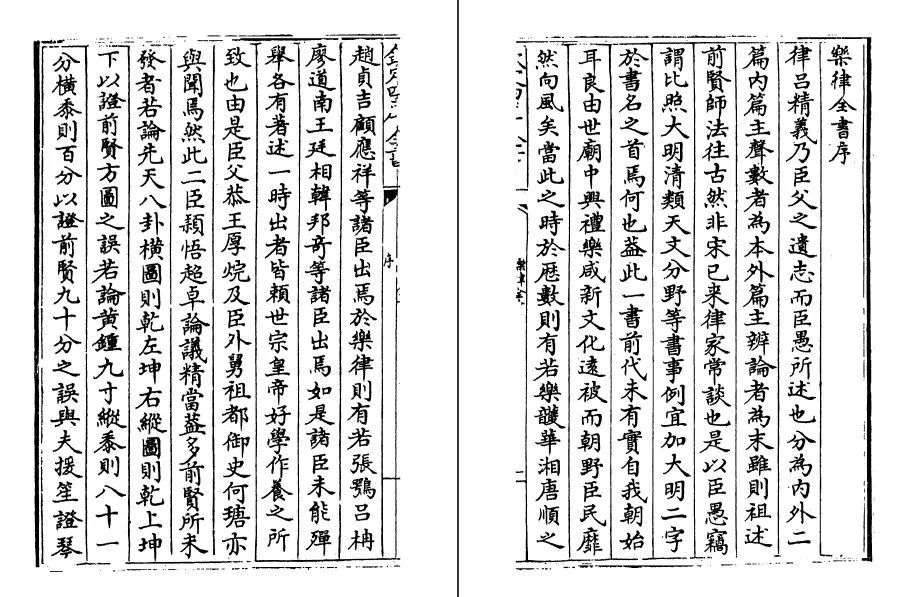 樂律全書序
律呂精義乃臣父之遺志而臣愚所述也分為内外二
篇内篇主聲數者為本外篇主辨論者為末雖則祖述
前賢師法往古然非宋已来律家常談也是以臣愚竊
謂比照大明清類天文分野等書事例宜加大明二字
於書名之首焉何也葢此一書前代未有實自我朝始
耳良由世廟中興禮樂咸新文化遠被而朝野臣民靡
然向風矣當此之時於厯數則有若樂頀華湘唐順之
序
趙貞吉顧應祥等諸臣出焉於樂律則有若張鶚吕柟
廖道南王廷相韓邦奇等諸臣出焉如是諸臣未能殫
舉各有著述一時出者皆頼世宗皇帝好學作養之所
致也由是臣父恭王厚烷及臣外舅祖都御史何瑭亦
與聞焉然此二臣穎悟超卓論議精當葢多前賢所未
發者若論先天八卦横圖則乾左坤右縱圖則乾上坤
下以證前賢方圖之誤若論黄鍾九寸縱黍則八十一
分横黍則百分以證前賢九十分之誤與夫援笙證琴